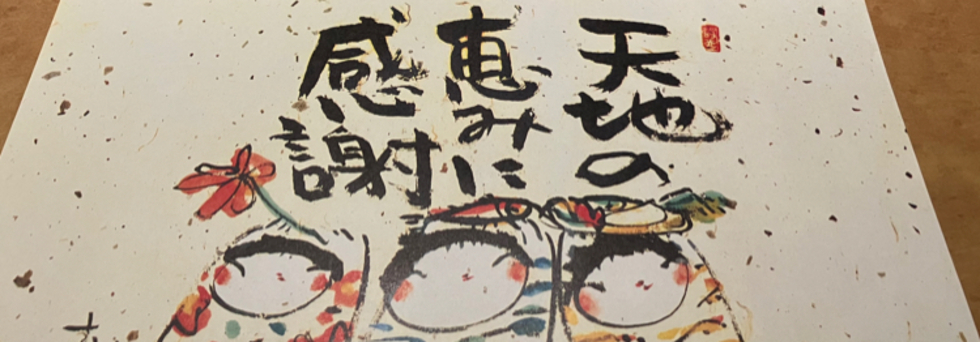 天地の
恵みに
感謝